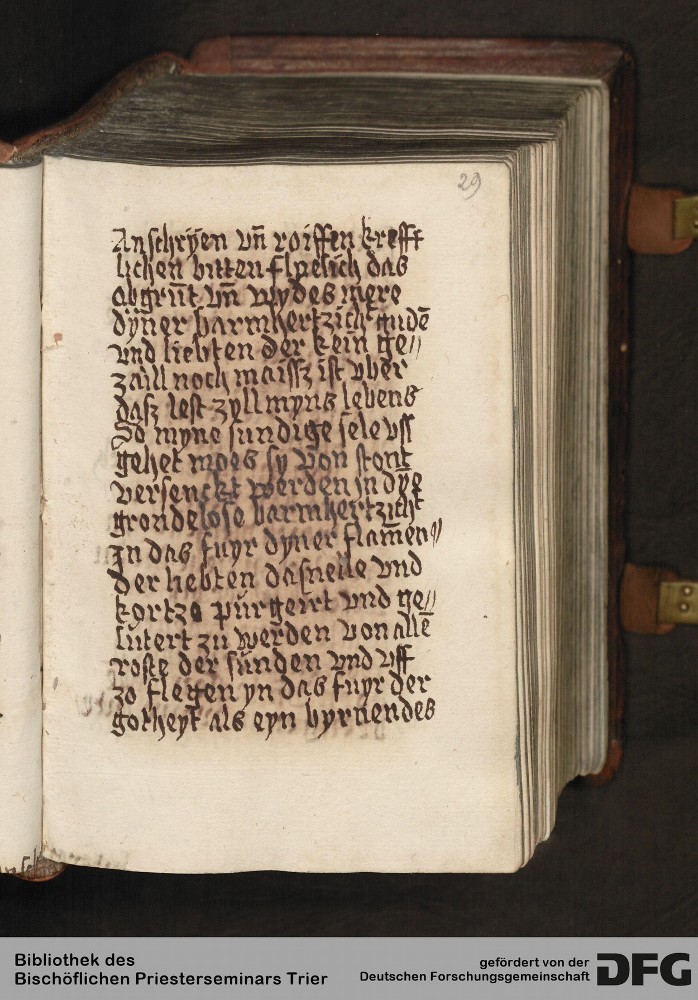 29
Anschryen vn̄ roiffen krefft
lichen bitten flyelich das
abgrūt vn̄ wydes mere
dyner barmhertzich gudē
vnd liebten der kein ge〃
zaill noch maissz ist vber
dasz lest zyll myns lebens
So myne sundige sele vff
gehet moes sy von stont
versenckt werden jn dye
grondelose barmhertzicht
In das fuyr dyner flam̄en〃
der liebten da snelle vnd
kortze purgeirt vnd ge〃
lutert zu werden von allē
roste der sunden vnd vff
zo flegen yn das fuyr der
gotheyt als eyn byrnendes
Bibliothek des
Bischöflichen Priesterseminars Trier
gefördert von der
Deutschen Forschungsgemeinschaft
DFG